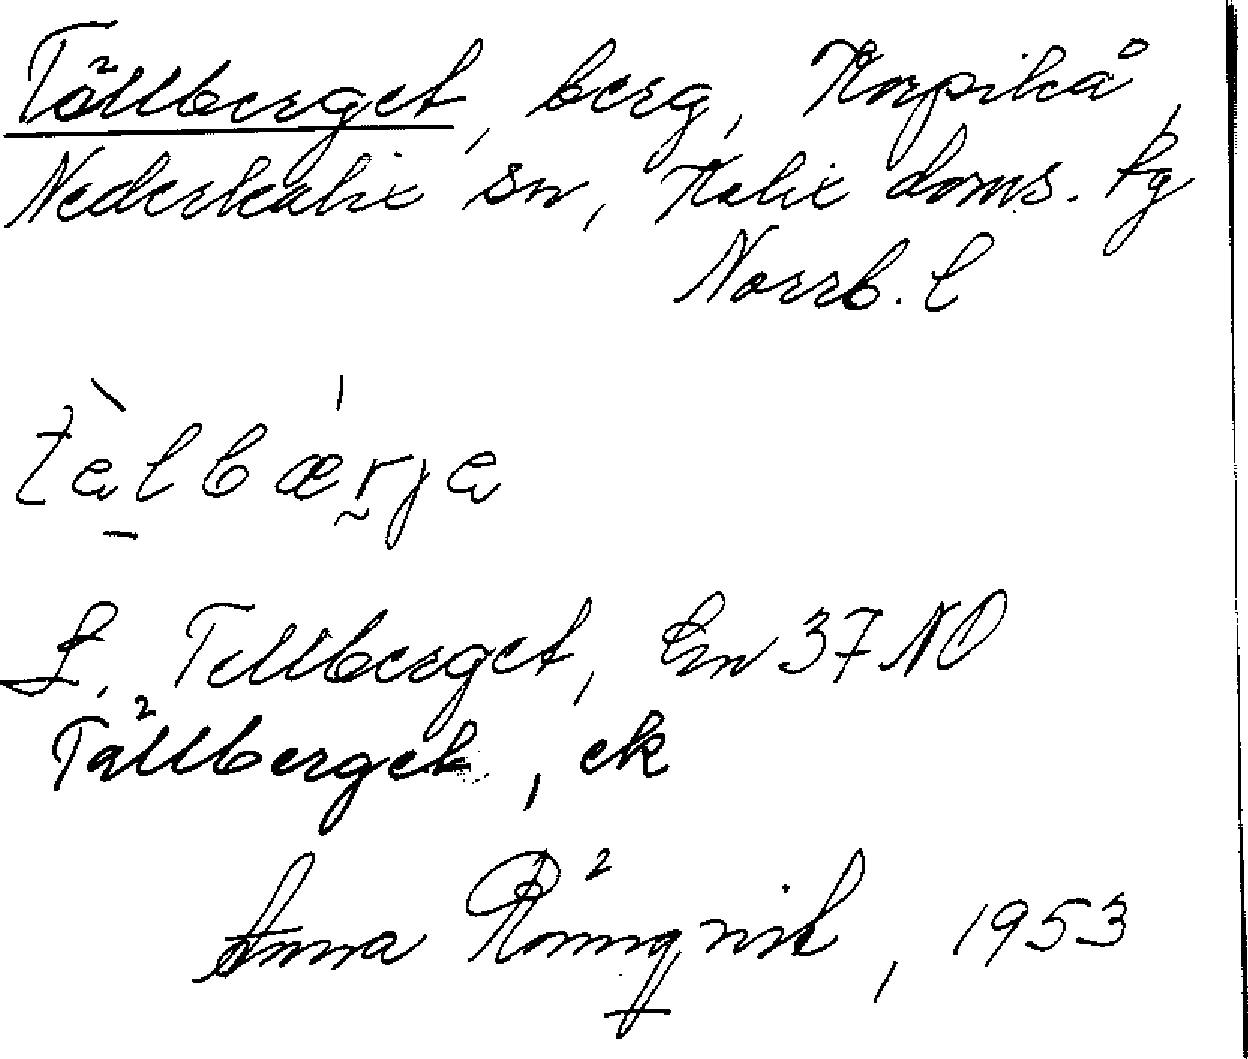 Tällberget, berg, Korpikå,
Nederkalix sn, Kalix doms. fg
Norrb. l
tàlbærja
L. Tellberget, Gn 37 NO
Tällberget, ek
Anna Rönnqvist, 1953